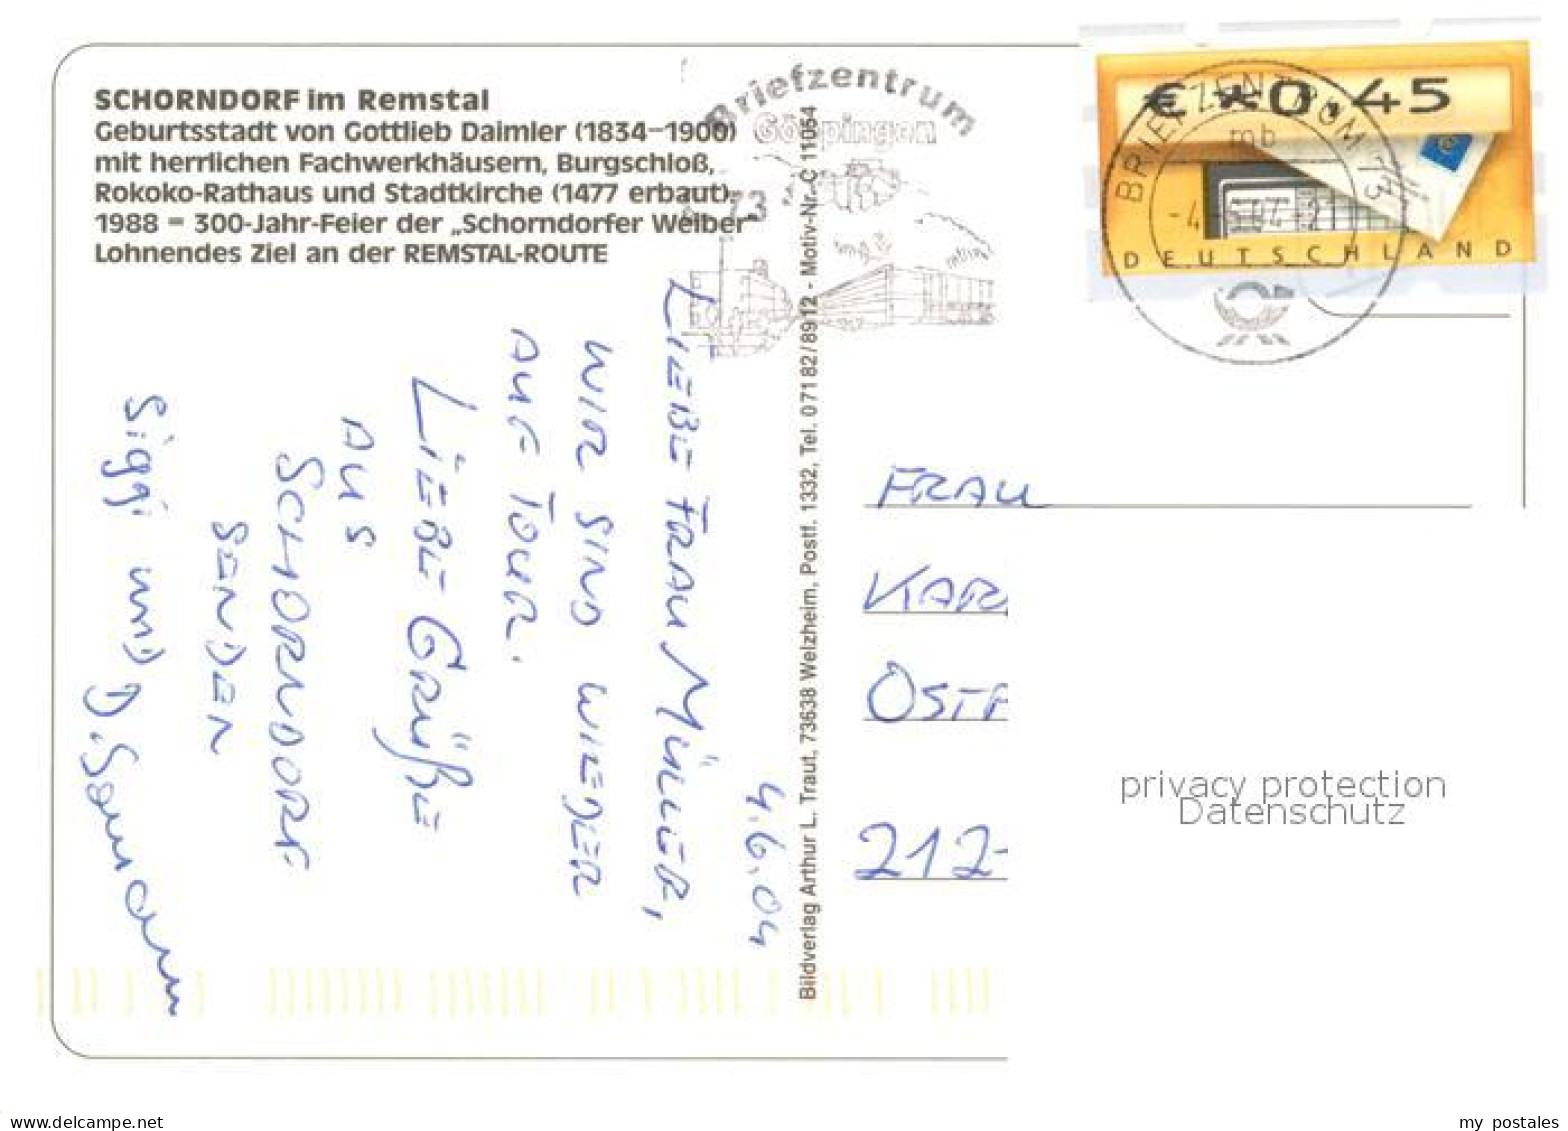 SCHORNDORF im Remstal
Geburtsstadt von Gottlieb Daimler (1834–1900)
mit herrlichen Fachwerkhäusern, Burgschloß,
Rokoko-Rathaus und Stadtkirche (1477 erbaut).
1988 = 300-Jahr-Feier der „Schorndorfer Weiber"
Lohnendes Ziel an der REMSTAL-ROUTE
Briefzentrum
Göppingen
73
€ *0,45
DEUTSCHLAND
BRIEFZENTRUM 73
mb
4.6.04
LIEBE FRAU MÜLLER,
WIR SIND WIEDER
AUF TOUR.
LIEBE GRÜßE
AUS
SCHORNDORF
SENDEN
Siggi und
Bildverlag Arthur L. Traut, 73638 Welzheim, Postf. 1332, Tel. 07182/8912 - Motiv-Nr. C 11054
FRAU
KAR
OST
212
privacy protection
Datenschutz
my postales